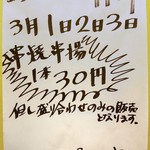 3月1日2日3日
串焼串揚
1本30円
但し盛り合わせのみの販売
となります。